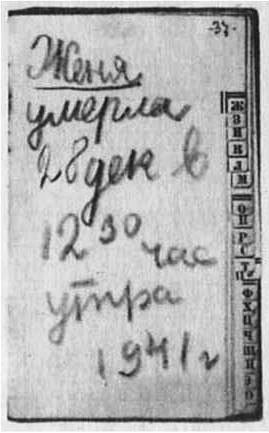 -37-
Женя
умерла
28 дек в
12 30 час
утра
1941 г
Ж
З
И
Л
М
О
П
Р
С
Т
Ф
Х
Ц
Ч